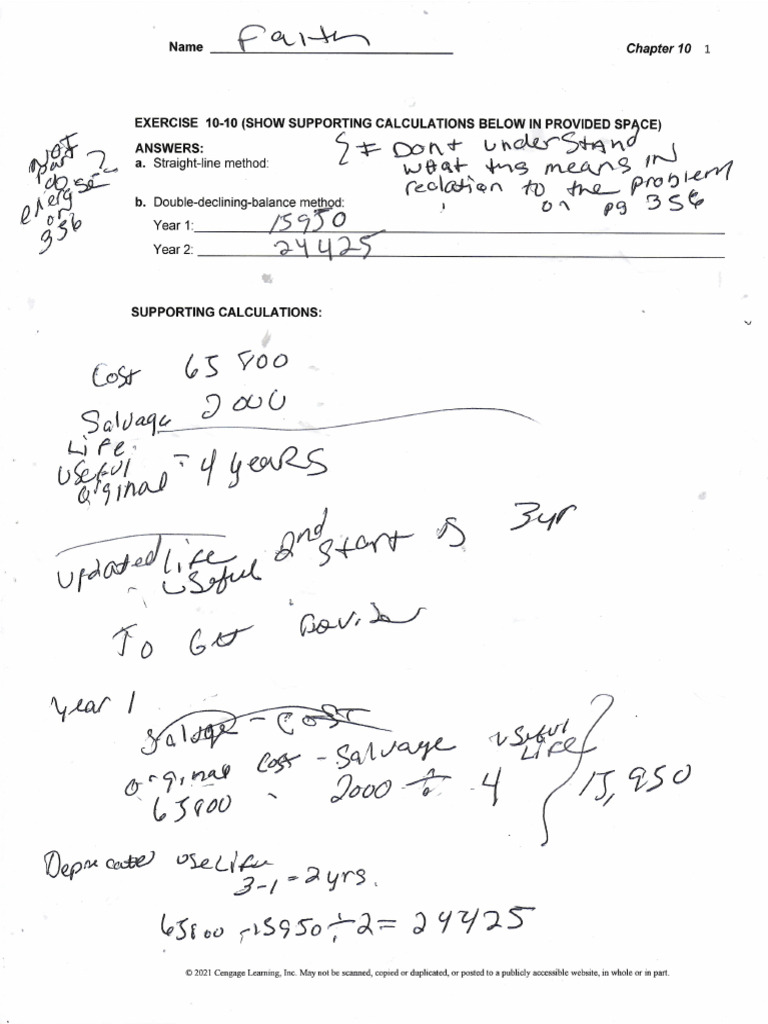 Name Faith Chapter 10 1
EXERCISE 10-10 (SHOW SUPPORTING CALCULATIONS BELOW IN PROVIDED SPACE)
ANSWERS:
a. Straight-line method:
I Dont understand
what this means in
reclation to the problem
on pg 356
Not
part
on
356
b. Double-declining-balance method:
Year 1: 15950
Year 2: 24425
SUPPORTING CALCULATIONS:
Cost 65 800
Salvage 2000
Life
Useful
orginal = 4 years
Updated Life Useful 2nd Start is 3yr
To Get
Year 1
Salvage - Cost
orginal Cost - Salvage useful Life
65800 - 2000 ÷ 4 15,950
UseLife
3-1 = 2yrs.
65800 - 15950 ÷ 2 = 24425
© 2021 Cengage Learning, Inc. May not be scanned, copied or duplicated, or posted to a publicly accessible website, in whole or in part.